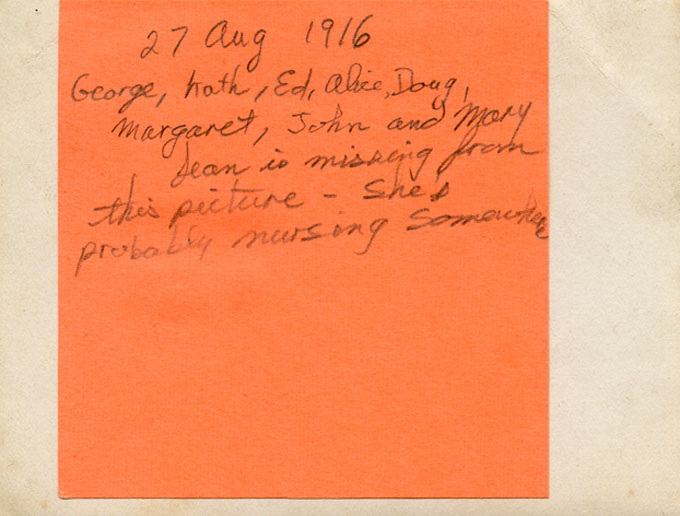 27 Aug 1916
George, Kath, Ed, Alice, Doug,
Margaret, John and Mary
Jean is missing from
this picture - She's
probably nursing somewhere